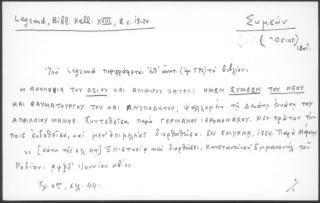 Legrand, Bibl. Hell. XVIII, 2, σ. 19-20
Συμεών
(Ὅσιος)
Ὑπὸ Legrand περιγράφεται ὑπ' ἀριθ. τὸ βιβλίον:
« ΑΚΟΛΟΥΘΙΑ ΤΟΥ ΟΣΙΟΥ ΚΑΙ ΘΕΟΦΟΡΟΥ ΠΑΤΡΟΣ ΗΜΩΝ ΣΥΜΕΩΝ ΤΟΥ ΝΕΟΥ
ΚΑΙ ΘΑΥΜΑΤΟΥΡΓΟΥ ΤΟΥ ΚΑΙ ΑΝΥΠΟΔΗΤΟΥ, ψαλλομένη ΤΟΥ
ΑΠΡΙΛΙΟΥ ΜΗΝΟΣ. Συντεθεῖσα ΠΑΡΑ ΓΕΡΜΑΝΟΥ ΙΕΡΟΜΟΝΑΧΟΥ. Νῦν πρῶτον
ἐκδοθεῖσα, καὶ μετ' ἐπιμελείας διορθωθεῖσα. ΕΝ ΣΜΥΡΝΗ, Παρὰ
» [Κάτω τῆς σελ. 44] Ἐπιστασίᾳ καὶ διορθώσει Κωνσταντίνου τοῦ
Ῥοδίου. Ἰουνίου
Σχ. 4ον, σελ. 44.